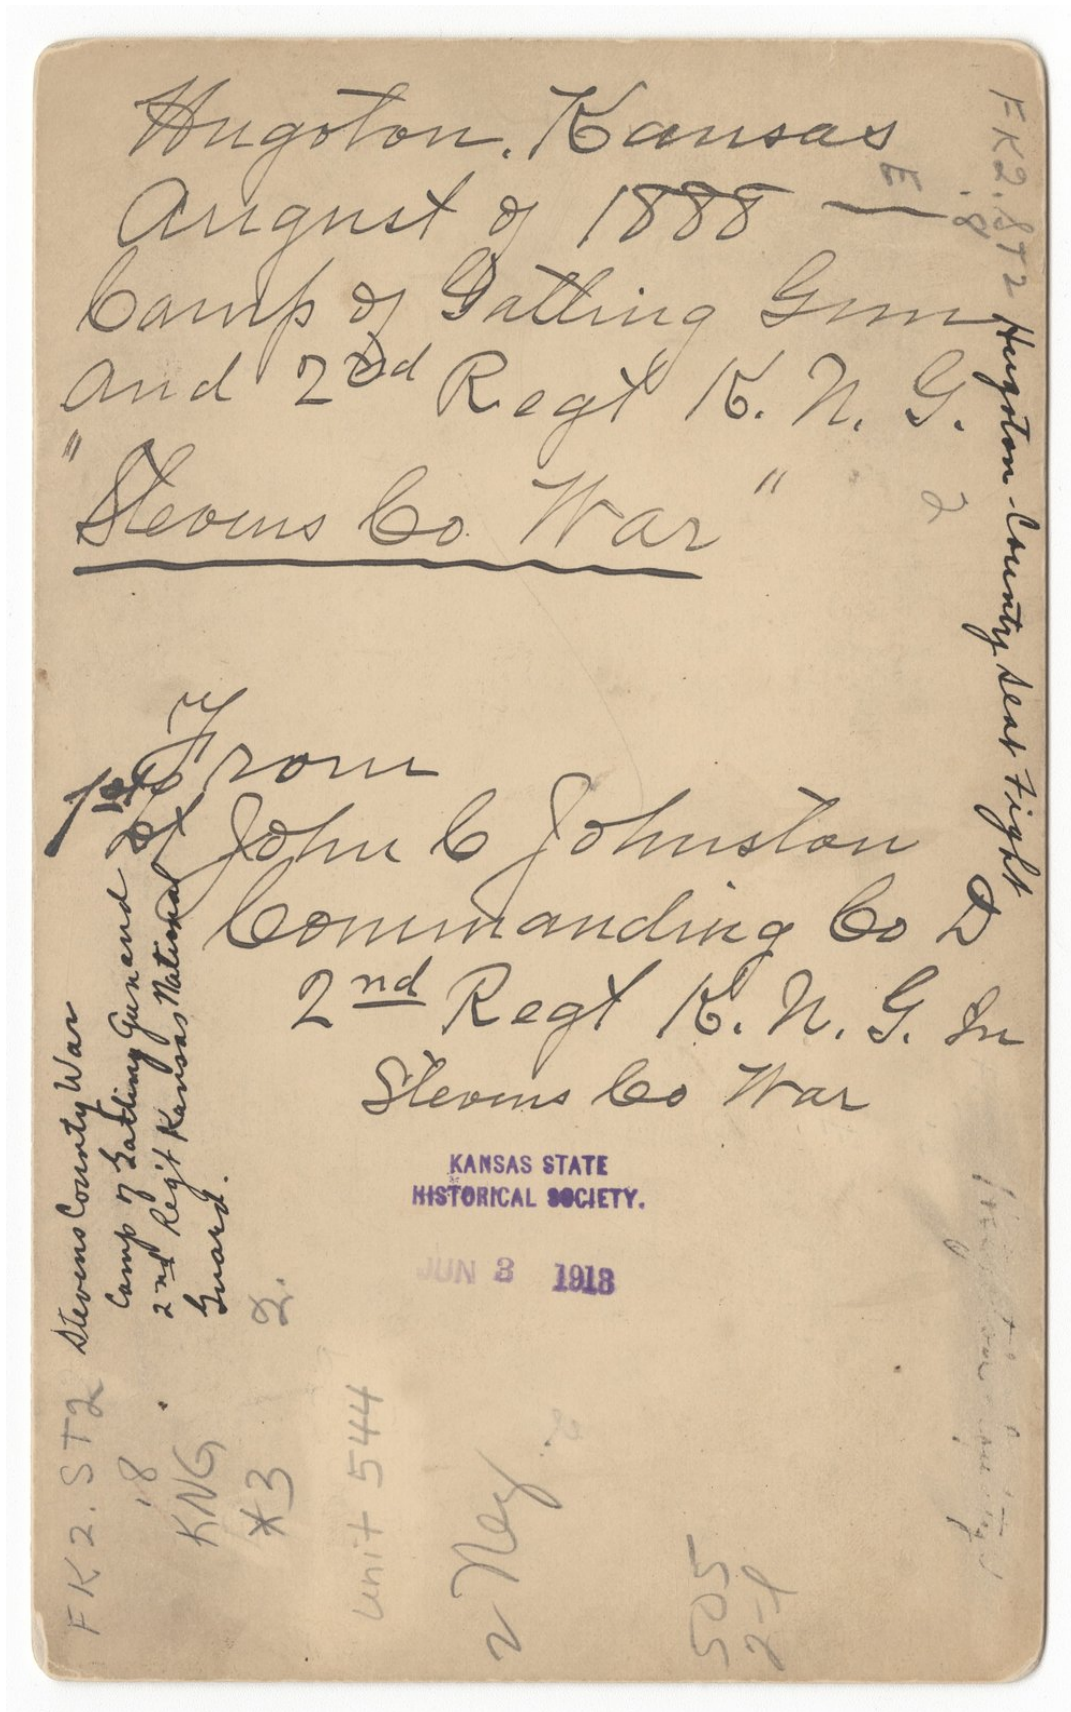 Hugoton, Kansas
August of 1888 —
Camp of Gatling Gun
and 2nd Regt K. N. G.
"Stevens Co War"
From
1st Lt John C Johnston
Commanding Co D
2nd Regt K. N. G. In
Stevens Co War
KANSAS STATE
HISTORICAL SOCIETY.
JUN 3 1918
E
FK2.ST2
.8
Hugoton - County Seat Fight
2
Stevens County War
Camp of Gatling Gun and
2nd Reg't Kansas National
Guard.
2.
FK2.ST2
.8
KNG
*3
unit 544
2 Neg
505